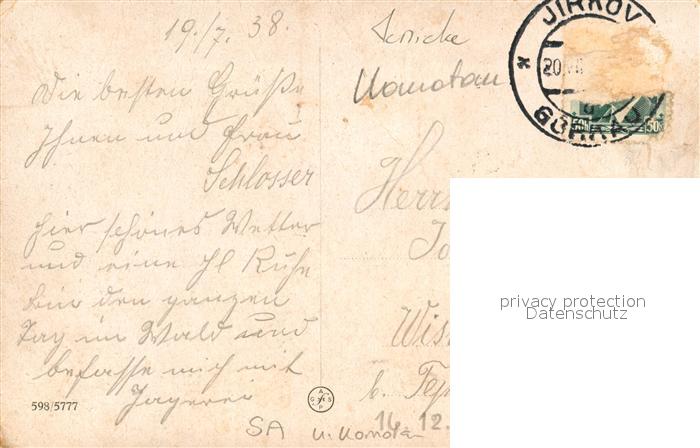 19./7. 38.
Die besten Grüße
Ihnen und Frau
Schlosser
hier schönes Wetter
und eine Hl Ruhe
bin den ganzen
Tag im Wald und
befasse mich mit
Jagerei
598/5777
SA
Komotau
JIRKOV
20.VII
GÖRKAU
50h 50h
Herrn
Wis
b. Tep
16. 12.
u. Komotau
privacy protection
Datenschutz